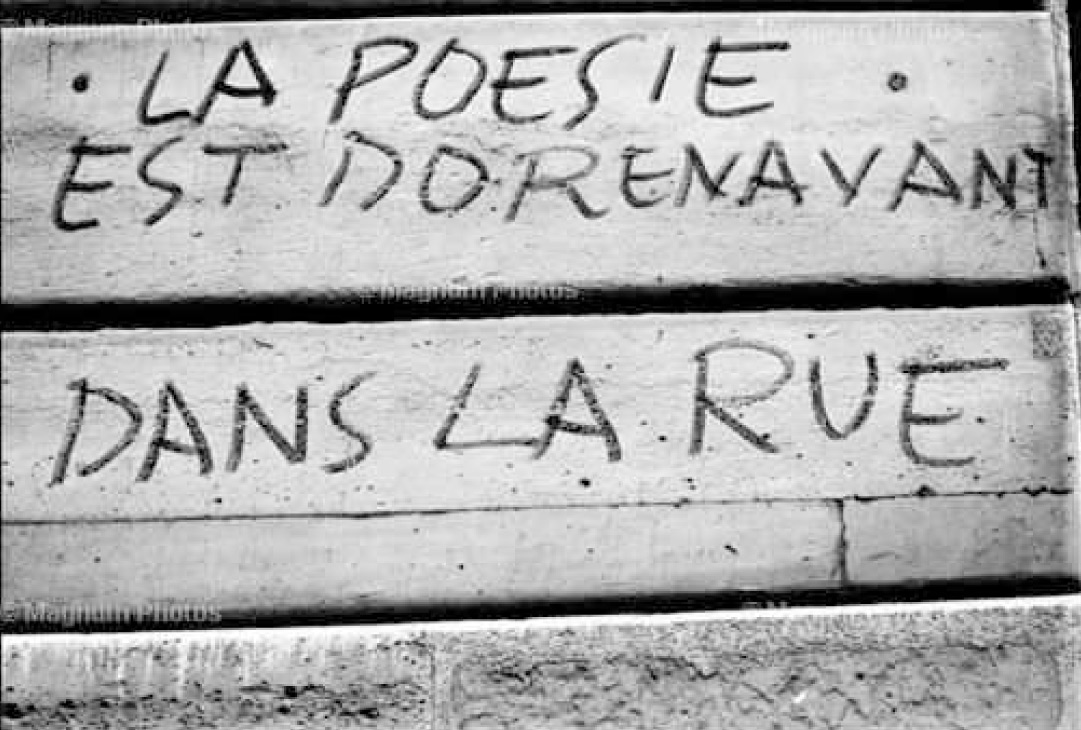 • LA POESIE •
EST DORENAVANT
DANS LA RUE
© Magnum Photos
© Magnum Photos